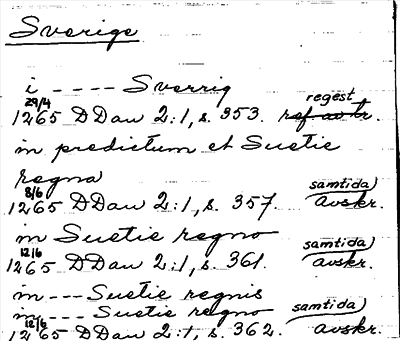 Sverige
i - - - - Sverrig
29/4 regest
1265 DDan 2:1, s. 353. ref av tr.
in predictum et Suetie
regna
8/6 samtida)
1265 DDan 2:1, s. 357. avskr.
in Suetie regno
12/6 samtida)
1265 DDan 2:1, s. 361. avskr.
in - - - Suetie regnis
in - - - Suetie regno
12/6 samtida)
1265 DDan 2:1, s. 362. avskr.